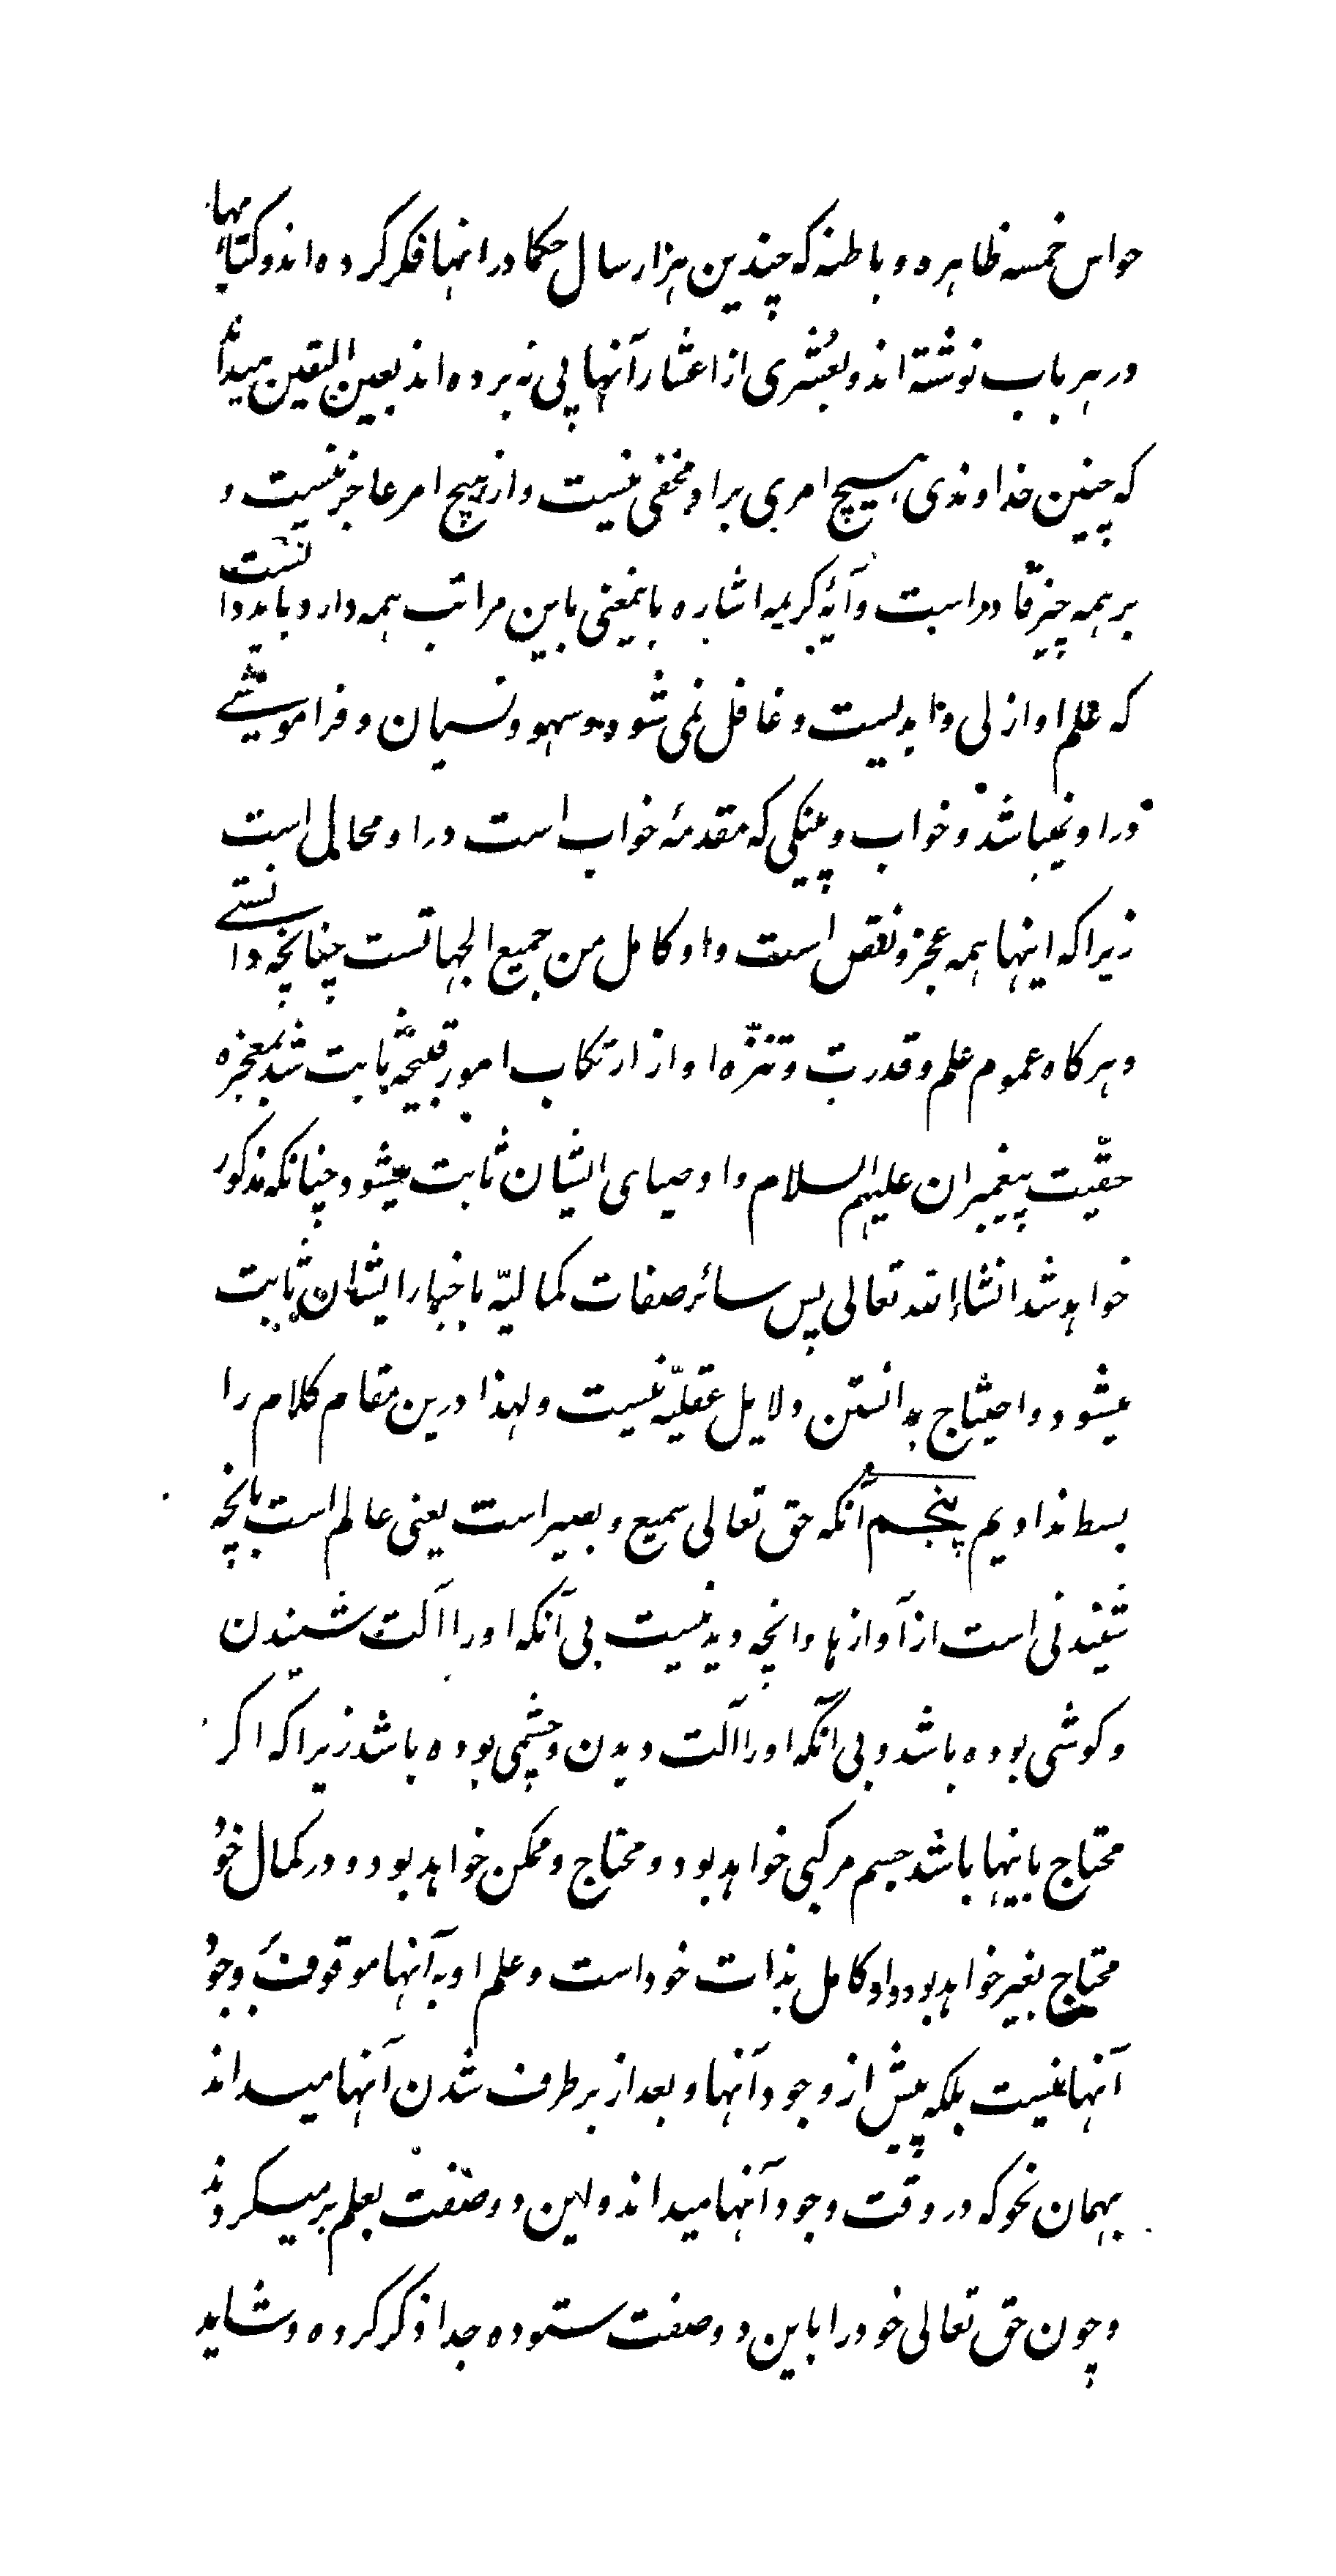 حواس خمسه ظاهره و باطنه که چندین هزار سال حکما در انها فکر کرده اند و کتابها
در هر باب نوشته اند و بعُشری از اعشار آنها پی نه برده اند بعین الیقین میداند
که چنین خداوندی هیچ امری بر او مخفی نیست و از هیچ امر عاجز نیست و
بر همه چیز قادر است و آیهٔ کریمه اشاره باینمعنی باین مراتب همه دارد و باید دانست
که علم او ازلی و ابدیست و غافل نمی شود و سهو و نسیان و فراموشی
در او نمیباشد و خواب و پینکی که مقدمهٔ خواب است در او محالی است
زیرا که اینها همه عجز و نقص است و او کامل من جمیع الجهاتست چنانچه دانستی
و هرکاه عموم علم و قدرت و تنزّه او از ارتکاب امور قبیحه ثابت شد بمعجزه
حقّیت پیغمبران علیهم السلام و اوصیای ایشان ثابت میشود چنانکه مذکور
خواهد شد انشاءالله تعالی پس سائر صفات کمالیّه باخبار ایشان ثابت
میشود و احتیاج بدانستن دلایل عقلیّه نیست و لهذا درین مقام کلام را
بسط ندادیم پنجم آنکه حق تعالی سمیع و بصیر است یعنی عالم است بانچه
شنیدنی است از آوازها و انچه دیدنیست بی آنکه او را آلت شنیدن
و کوشی بوده باشد و بی آنکه او را آلت دیدن و چشمی بوده باشد زیرا که اکر
محتاج باینها باشد جسم مرکبی خواهد بود و محتاج و ممکن خواهد بود و در کمال خود
محتاج بغیر خواهد بود و او کامل بذات خود است و علم او به آنها موقوف بوجود
آنها نیست بلکه پیش از وجود آنها و بعد از برطرف شدن آنها میداند
بهمان نحو که در وقت وجود آنها میداند و این دو صفت بعلم برمیکردند
و چون حق تعالی خود را باین دو صفت ستوده جدا ذکر کرده و شاید